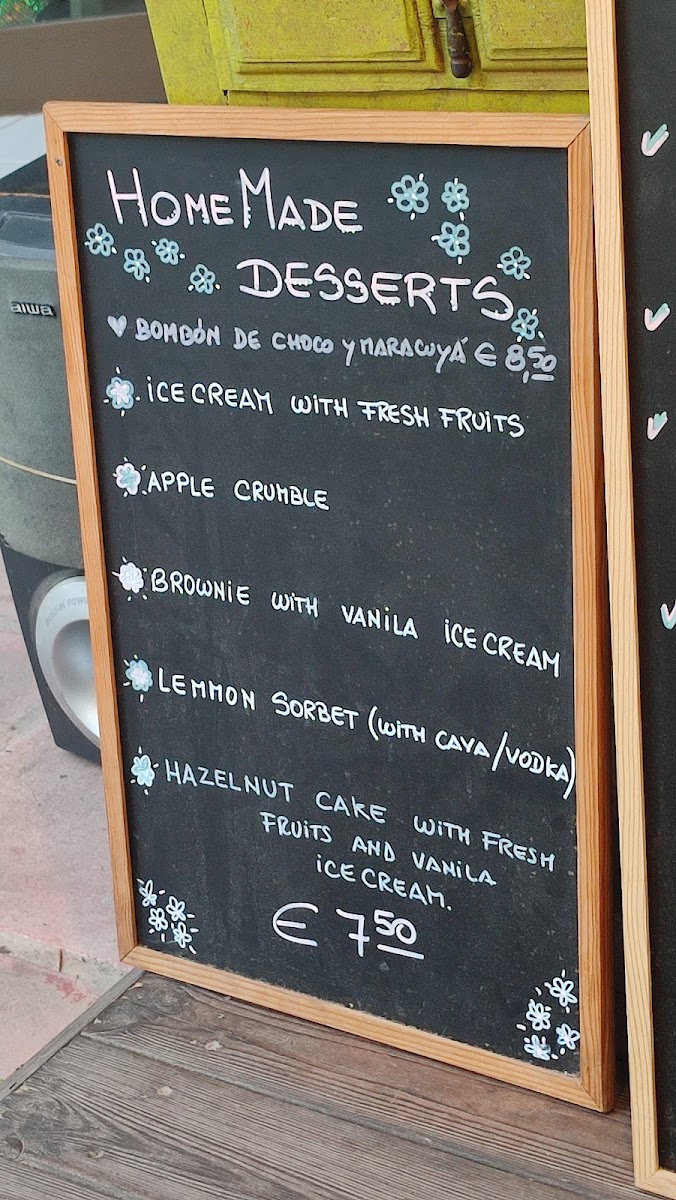 HOMEMADE
DESSERTS
BOMBÓN DE CHOCO Y MARACUYÁ € 8,50
ICE CREAM WITH FRESH FRUITS
APPLE CRUMBLE
BROWNIE WITH VANILA ICE CREAM
LEMMON SORBET (WITH CAVA/VODKA)
HAZELNUT CAKE WITH FRESH
FRUITS AND VANILA
ICE CREAM.
€ 750
aiwa